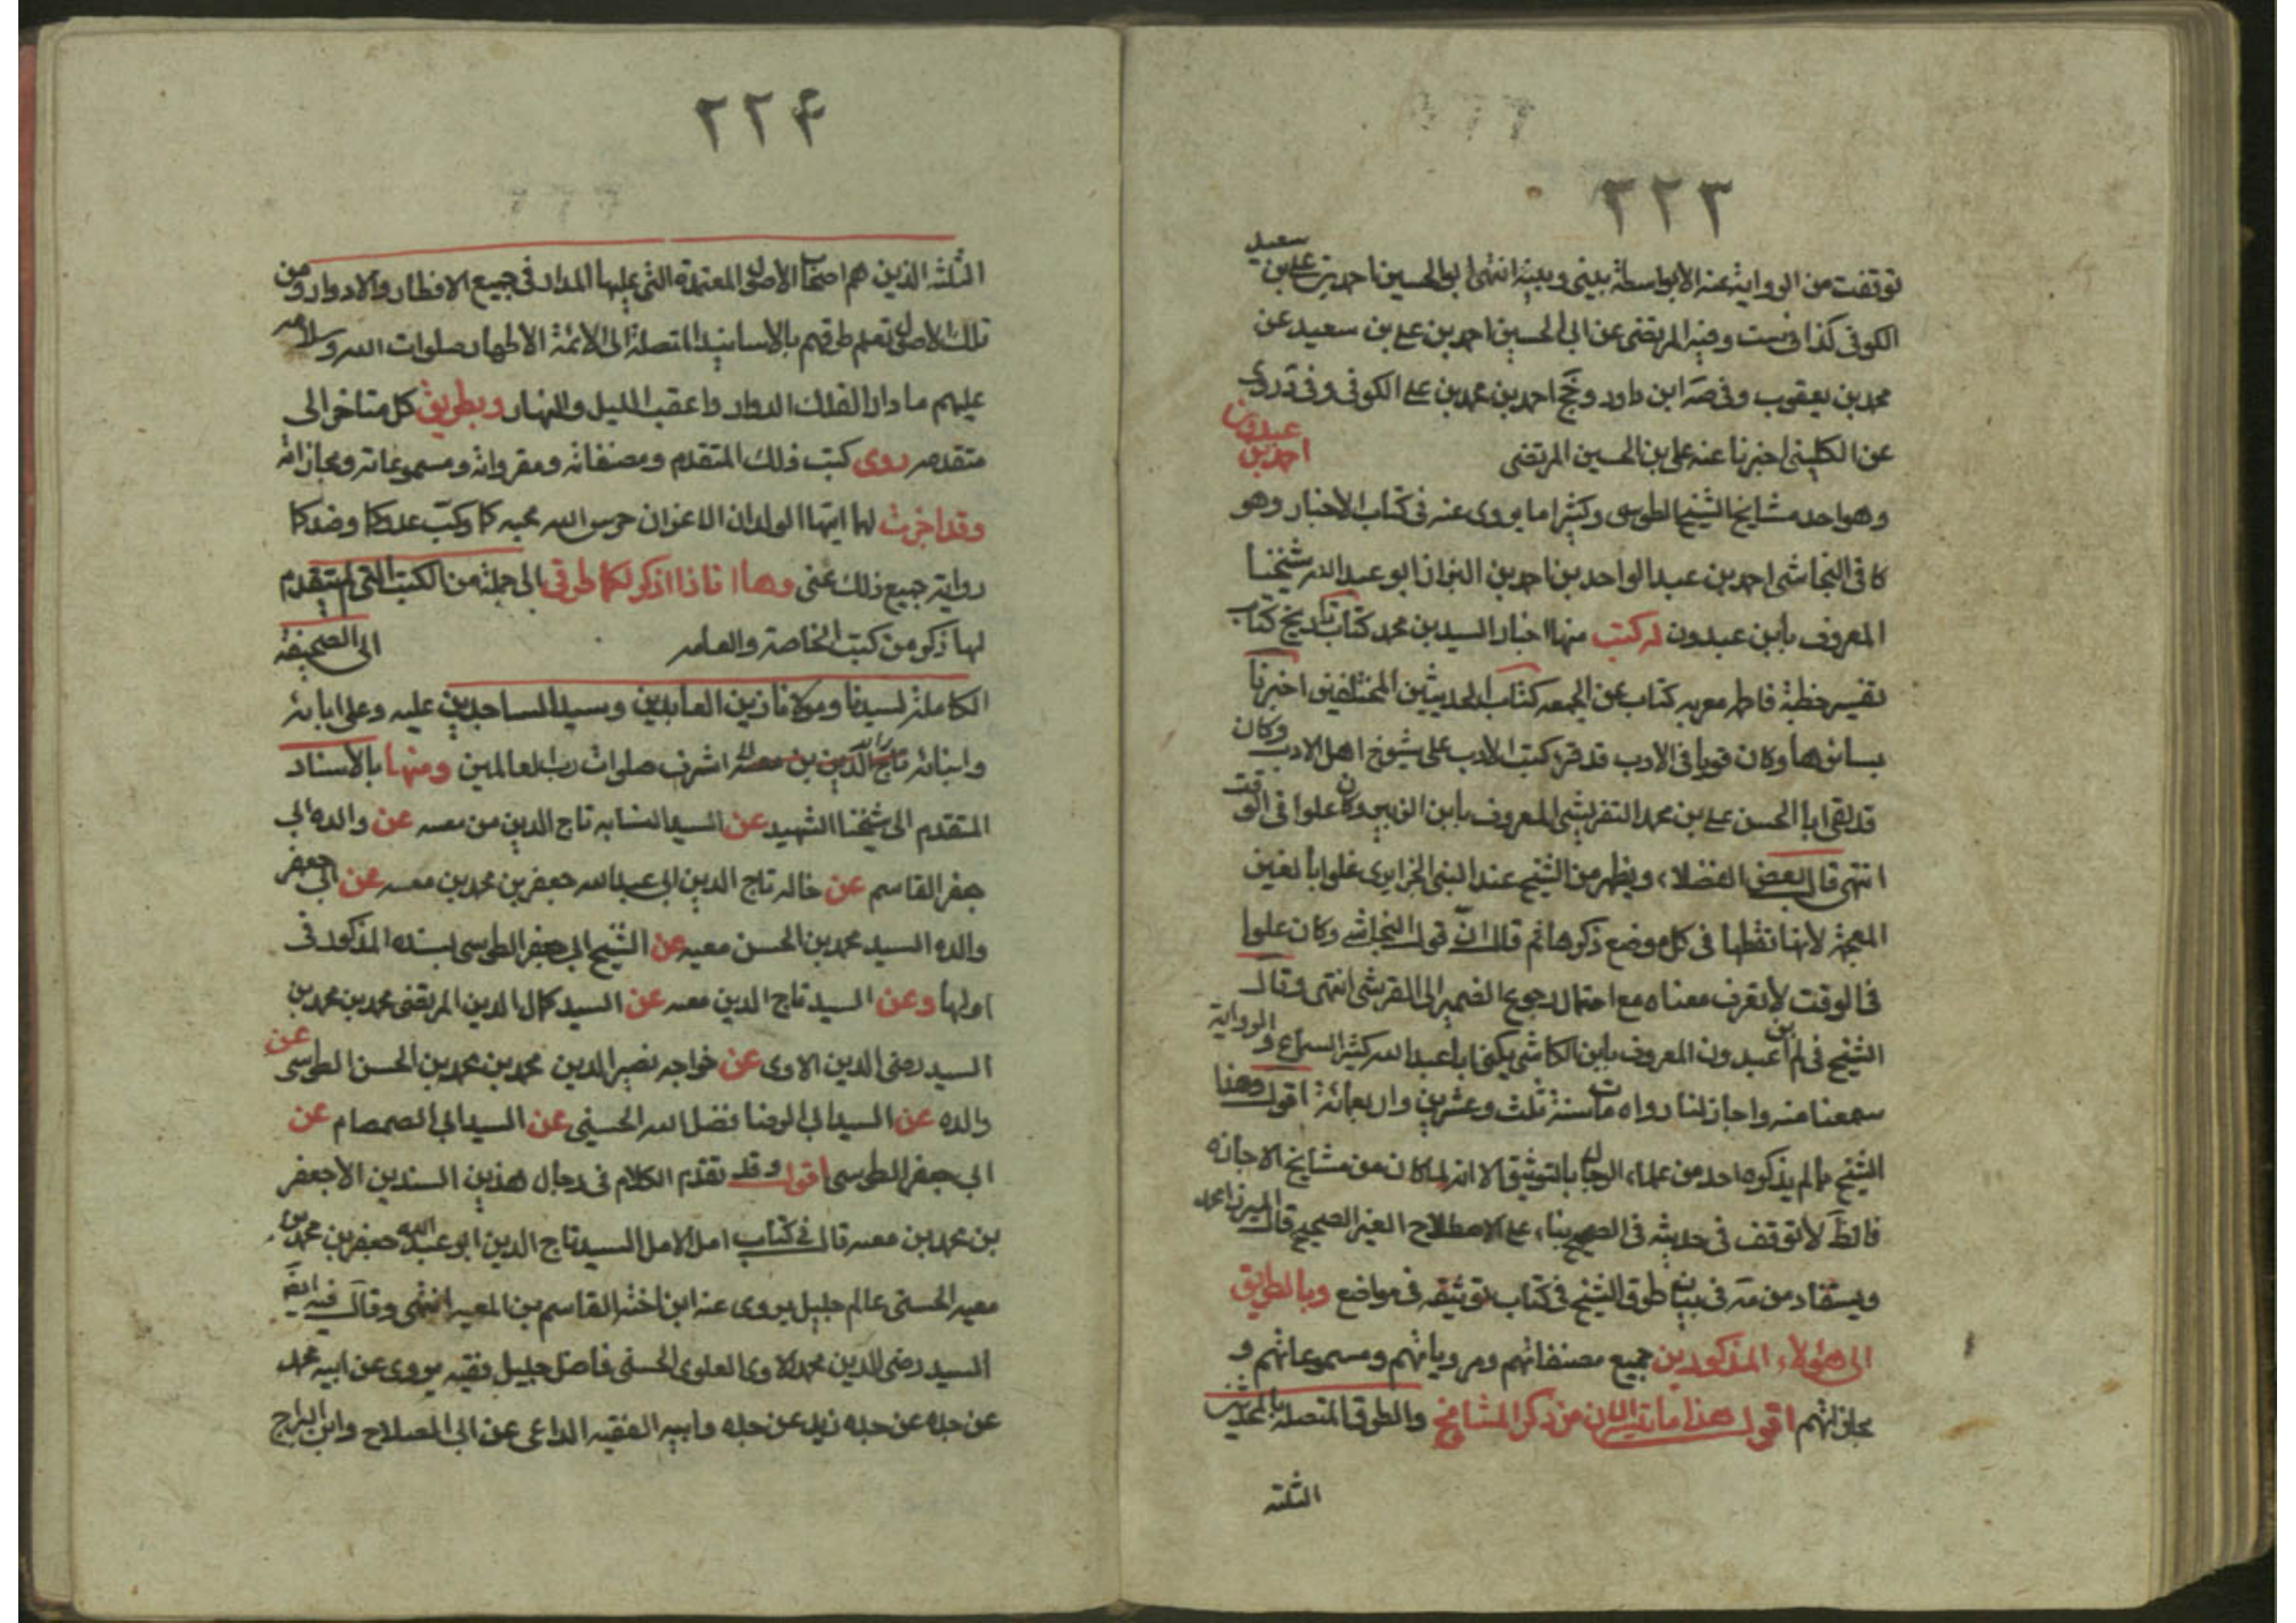 ٢٢٣
توقفت من الرواية عنه الا بواسطة بيني وبينه انتهى ابو الحسين احمد بن علي بن سعيد
الكوفي كذا في ست وفيه المرتضى عن ابي الحسين احمد بن علي بن سعيد عن
محمد بن يعقوب وفي صه ابن داود وجخ احمد بن محمد بن علي الكوفي وفي د روى
عن الكليني اخبرنا عنه علي بن الحسين المرتضى احمد بن عبدون
وهو احد مشايخ الشيخ الطوسي وكثيرا ما يروى عنه في كتاب الاخبار وهو
كما في النجاشي احمد بن عبد الواحد بن احمد بن البزاز ابو عبد الله شيخنا
المعروف بابن عبدون له كتب منها اخبار السيد بن محمد كتاب تاريخ كتاب
تفسير خطبة فاطمه معربه كتاب عمل الجمعه كتاب الحديثين المختلفين اخبرنا
بسائرها وكان قويا في الادب قد قرء كتب الادب على شيوخ اهل الادب وكان
قد لقى ابا الحسن علي بن محمد القرشي المعروف بابن الزبير وكان علوا في الوقت
انتهى قال بعض الفضلاء ويظهر من الشيخ عبد النبي الجزايري غلوا بالغين
المعجمة لانها نقطها في كل موضع ذكرها ثم قال ان قول النجاشي وكان علوا
في الوقت لا نعرف معناه مع احتمال رجوع الضمير الى القرشي انتهى وقال
الشيخ في لم ابن عبدون المعروف بابن الحاشر يكنى ابا عبد الله كثير السماع والرواية
سمعنا منه واجاز لنا رواه مات سنة ثلث وعشرين واربعمائة اقول وهذا
الشيخ مما لم يذكره احد من علماء الرجال بالتوثيق الا انه لما كان من مشايخ الاجازه
فالظ لا توقف في حديثه في الصحيح بناء على الاصطلاح الغير الصحيح قال الميرزا محمد
ويستفاد من مه في بيان طرق الشيخ في كتاب توثيقه في مواضع وبالطريق
الى هؤلاء المذكورين جميع مصنفاتهم ومروياتهم ومسموعاتهم و
مجازاتهم اقول هذا ما تيسر الان من ذكر المشايخ والطرق المتصلة بالمحمدين
الثلثه
٢٢٤
الثلثه الذين هم اصحاب الاصول المعتمدة التي عليها المدار في جميع الاقطار والادوار ومن
تلك الاصول تعلم طرقهم بالاسانيد المتصلة الى الائمة الاطهار صلوات الله وسلامه
عليهم ما دار الفلك الدوار واعقب الليل والنهار وبطريق كل متاخر الى
متقدم روى كتب ذلك المتقدم ومصنفاته ومقرواته ومسموعاته ومجازاته
وقد اجزت لهما ايها الولدان الاعزان حرس الله مجدكما وكبت عدوكما وضدكما
رواية جميع ذلك عني وها انا ذا اذكر لكما طرقي الى جملة من الكتب التي لم يتقدم
لها ذكر من كتب الخاصة والعامه الى الصحيفة
الكاملة لسيدنا ومولانا زين العابدين وسيد الساجدين عليه وعلى ابائه
وابنائه تاج الدين بن معيه اشرف صلوات رب العالمين ومنها بالاسناد
المتقدم الى شيخنا الشهيد عن السيد النسابه تاج الدين من معيه عن والده ابي
جعفر القاسم عن خاله تاج الدين ابي عبد الله جعفر بن محمد بن معيه عن ابي جعفر
والده السيد محمد بن الحسن معيه عن الشيخ ابي جعفر الطوسي بسنده المذكور في
اولها وعن السيد تاج الدين معيه عن السيد كمال الدين المرتضى محمد بن محمد بن
السيد رضى الدين الاوى عن خواجه نصير الدين محمد بن محمد بن الحسن الطوسي عن
والده عن السيد ابي الرضا فضل الله الحسيني عن السيد ابي الصمصام عن
ابي جعفر الطوسي اقول وقد تقدم الكلام في رجال هذين السندين الا جعفر
بن محمد بن معيه قال في كتاب امل الامل السيد تاج الدين ابو عبد الله جعفر بن محمد بن
معيه الحسنى عالم جليل يروى عنه ابن اخته القاسم بن المعيه انتهى وقال فيه ايضا
السيد رضى الدين محمد الاوى العلوى الحسنى فاضل جليل فقيه يروى عن ابيه محمد
عن جده عن جده زيد عن جده وابيه الفقيه الداعى عن ابي الصلاح وابن البراج